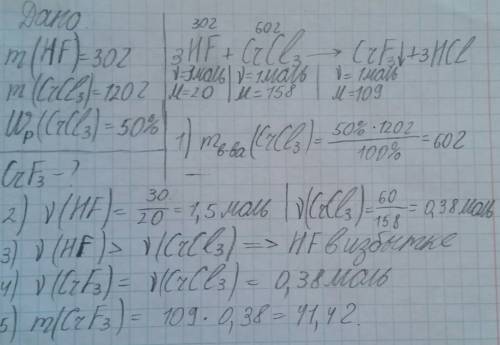 Дано
m(HF)=30г
m(CrCl3)=120г
Wр(CrCl3)=50%
CrF3-?
30г 60г
3HF+CrCl3 → CrF3↓+3HCl
ν=3моль | ν=1моль | ν=1моль
M=20 | M=158 | M=109
1) mв-ва(CrCl3)= 50%·120г / 100% =60г
2) ν(HF)= 30/20 =1,5моль | ν(CrCl3)= 60/158 =0,38моль
3) ν(HF)>ν(CrCl3) => HF в избытке
4) ν(CrF3)=ν(CrCl3)=0,38моль
5) m(CrF3)=109·0,38=41,42